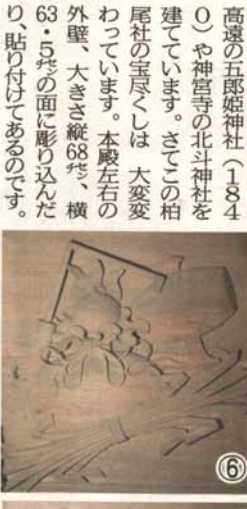 高遠の五郎姫神社（１８４
０）や神宮寺の北斗神社を
建てています。さてこの柏
尾社の宝尽くしは　大変変
わっています。本殿左右の
外壁、大きさ縦68㌢、横
63・5㌢の面に彫り込んだ
り、貼り付けてあるのです。
⑥